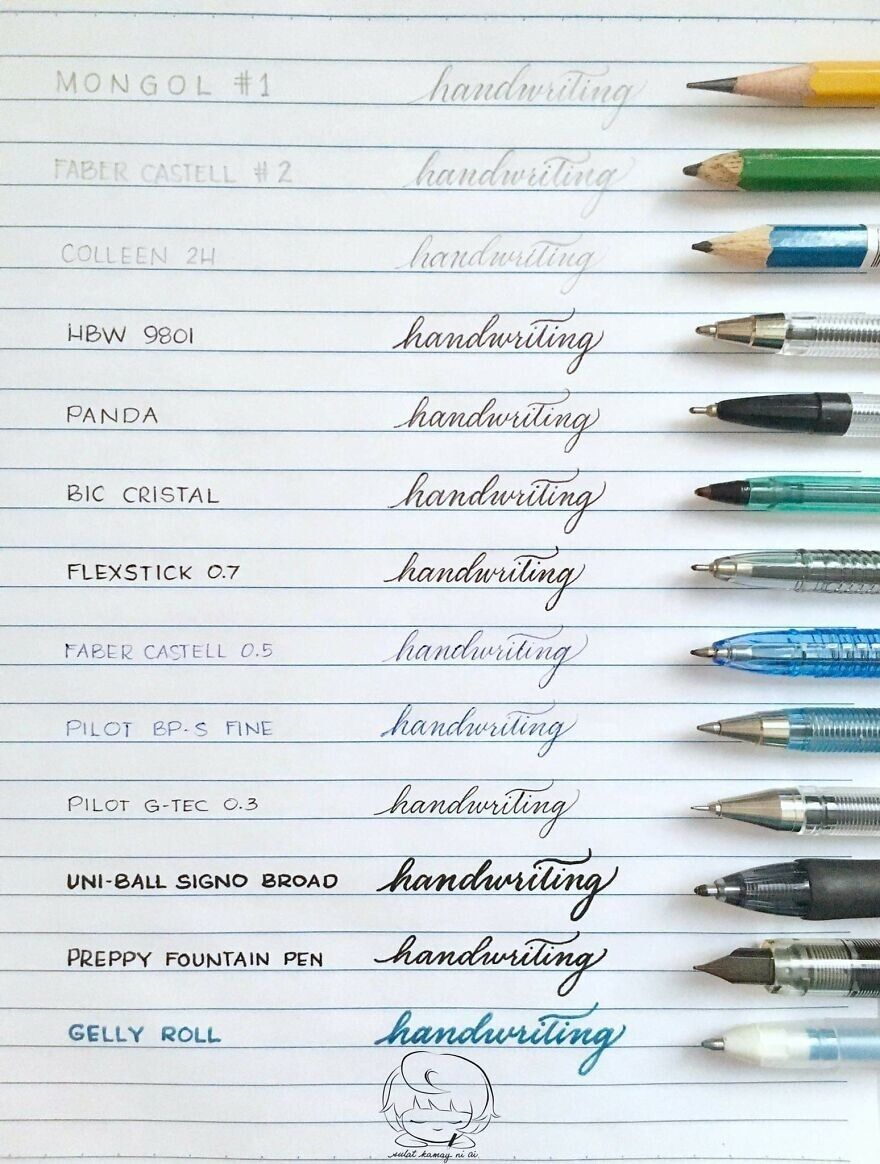 MONGOL #1 handwriting
FABER CASTELL #2 handwriting
COLLEEN 2H handwriting
HBW 9801 handwriting
PANDA handwriting
BIC CRISTAL handwriting
FLEXSTICK 0.7 handwriting
FABER CASTELL 0.5 handwriting
PILOT BP-S FINE handwriting
PILOT G-TEC 0.3 handwriting
UNI-BALL SIGNO BROAD handwriting
PREPPY FOUNTAIN PEN handwriting
GELLY ROLL handwriting
sulat kamay ni ai